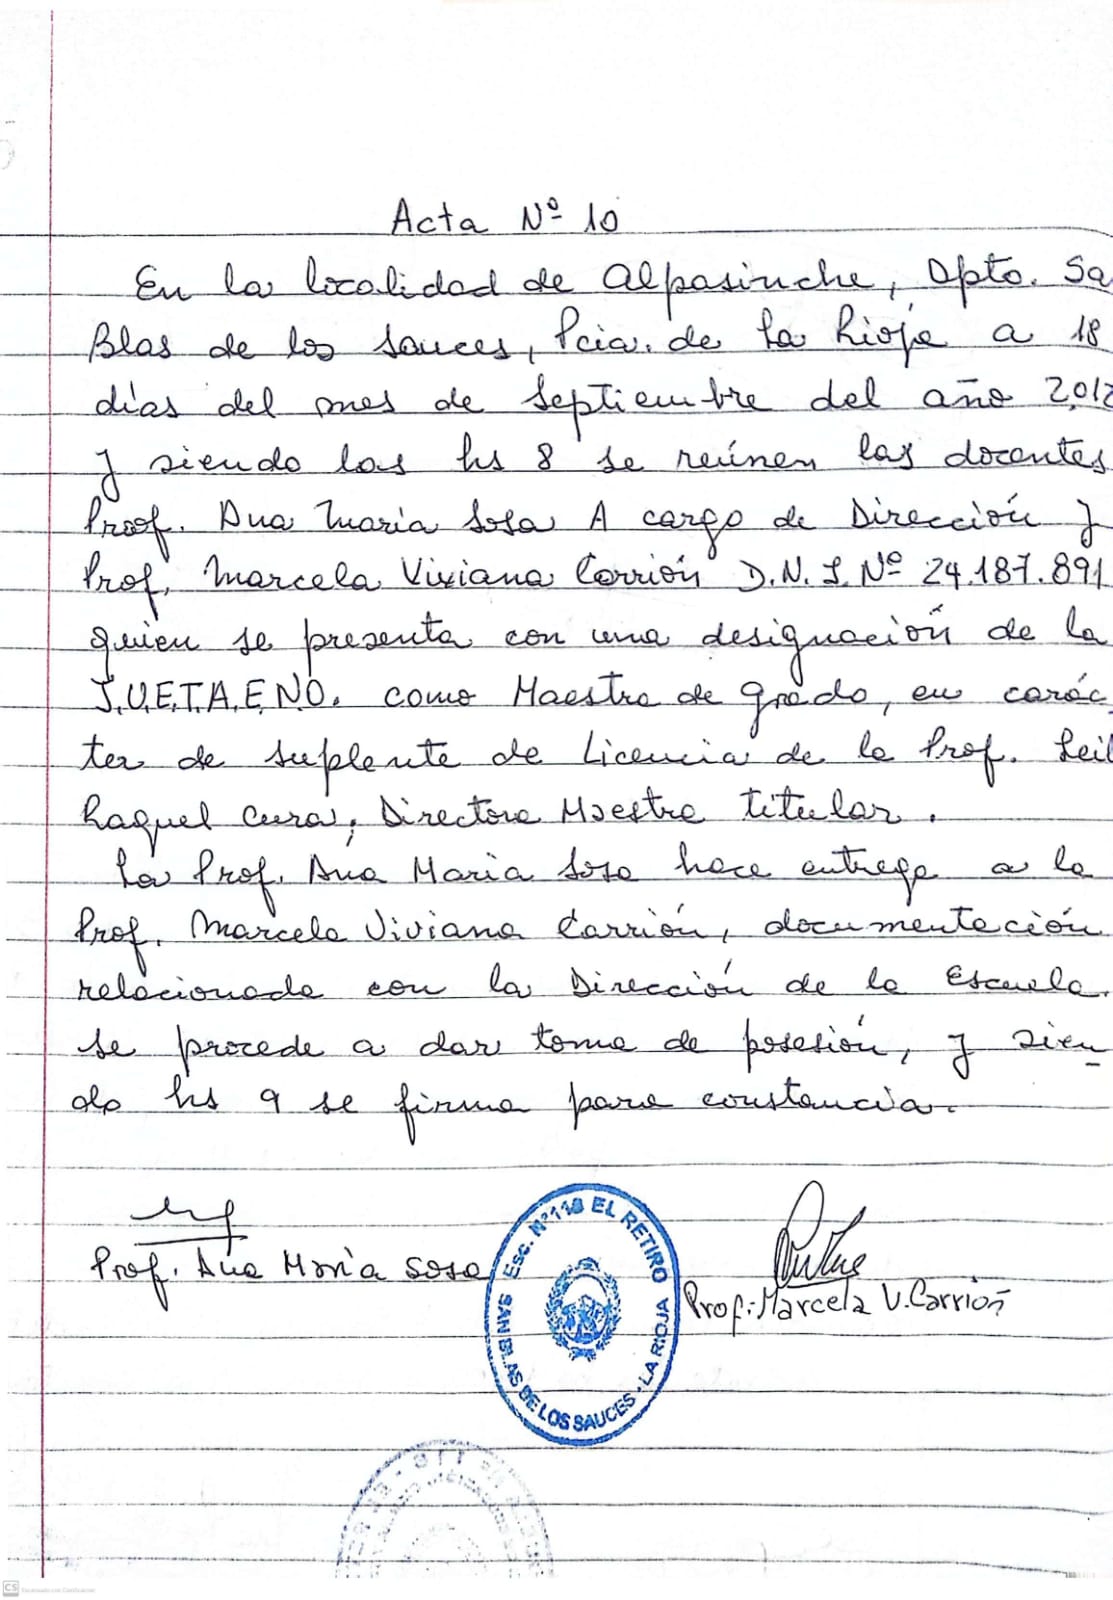 Acta Nº 10
En la localidad de Alpasinche, Dpto. Sa
Blas de los Sauces, Pcia. de La Rioja a 18
días del mes de Septiembre del año 2.012
y siendo las hs 8 se reúnen las docentes
Prof. Ana María Sosa A cargo de Dirección y
Prof. Marcela Viviana Carrión D.N.I. Nº 24.187.891
quien se presenta con una designación de la
J.U.E.T.A.E.N.O. como Maestra de grado, en carác
ter de suplente de Licencia de la Prof. Leil
Raquel Cura, Directora Maestra titular.
La Prof. Ana Maria Sosa hace entrega a la
Prof. Marcela Viviana Carrión, documentación
relacionada con la Dirección de la Escuela.
se procede a dar toma de posesión, y sien
do hs 9 se firma para constancia.
Prof. Ana María Sosa
Esc. Nº 118 EL RETIRO
SAN BLAS DE LOS SAUCES - LA RIOJA
Prof: Marcela V. Carrión
CS